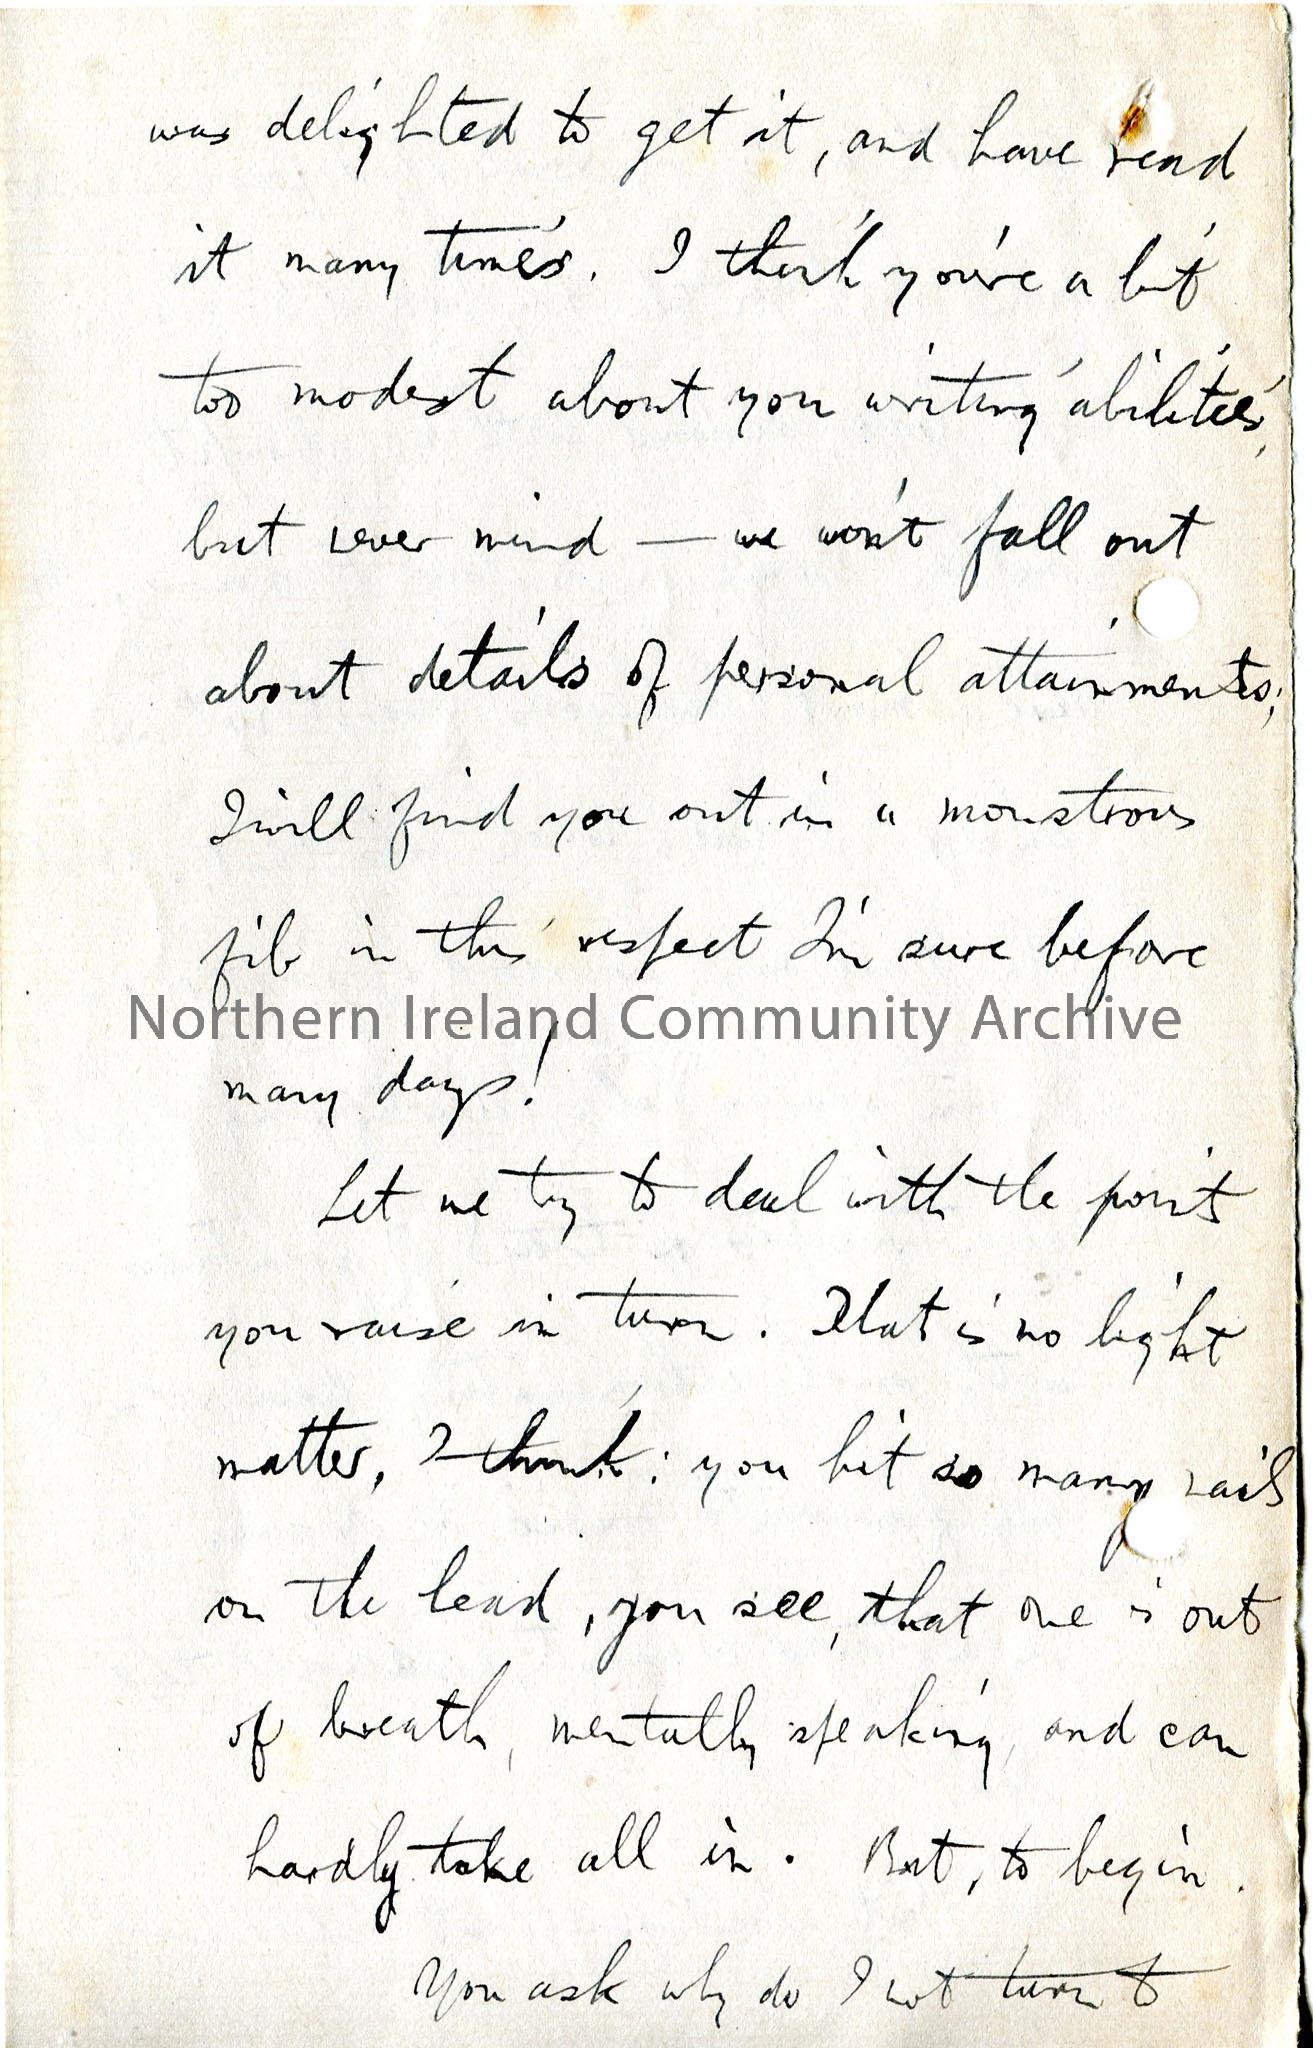 was delighted to get it, and have read
it many times. I think you're a bit
too modest about you writing abilities,
but never mind — we won't fall out
about details of personal attainments;
I will find you out in a monstrous
fib in this respect I'm sure before
Northern Ireland Community Archive
many days!
Let me try to deal with the points
you raise in turn. That is no light
matter, I think: you hit so many nails
on the head, you see, that one is out
of breath, mentally speaking, and can
hardly take all in. But, to begin.
You ask why do I not turn to